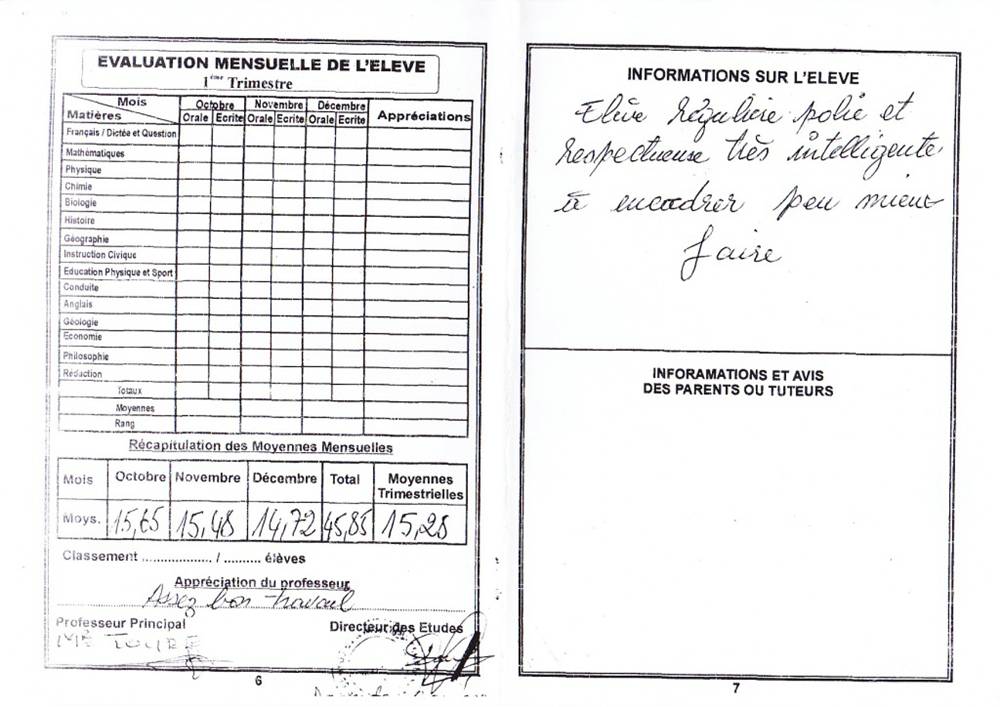 EVALUATION MENSUELLE DE L'ELEVE
1ème Trimestre
Mois
Matières
Octobre Novembre Décembre Appréciations
Orale Ecrite Orale Ecrite Orale Ecrite
Français / Dictée et Question
Mathématiques
Physique
Chimie
Biologie
Histoire
Géographie
Instruction Civique
Education Physique et Sport
Conduite
Anglais
Géologie
Economie
Philosophie
Rédaction
Totaux
Moyennes
Rang
Récapitulation des Moyennes Mensuelles
Mois Octobre Novembre Décembre Total Moyennes Trimestrielles
Moys. 15,65 15,48 14,72 45,85 15,28
Classement .................. / .......... élèves
Appréciation du professeur
Assez bon travail
Professeur Principal Directeur des Etudes
6
INFORMATIONS SUR L'ELEVE
Elève régulière polie et
respectueuse très intelligente
à encadrer peu mieux
faire
INFORAMATIONS ET AVIS
DES PARENTS OU TUTEURS
7